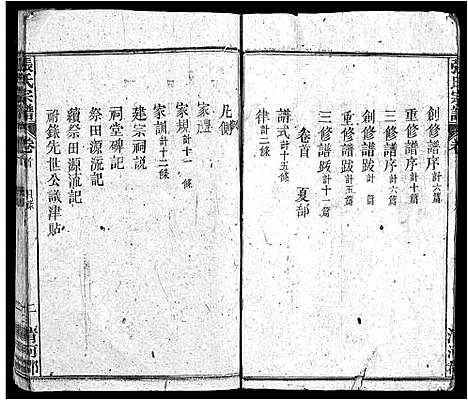 創修譜序計六篇
重修譜序計十篇
三修譜序計六篇
創修譜跋
重修譜跋計五篇
三修譜跋計十一篇
卷首 夏部
譜式計十五條
律計二條
凡例
家禮
家規計十一條
家訓計十二條
建宗祠說
祠堂碑記
祭田源流記
續祭田源流記
祔錄先世公議津貼
張氏宗譜
卷首
目錄
二
清河郡